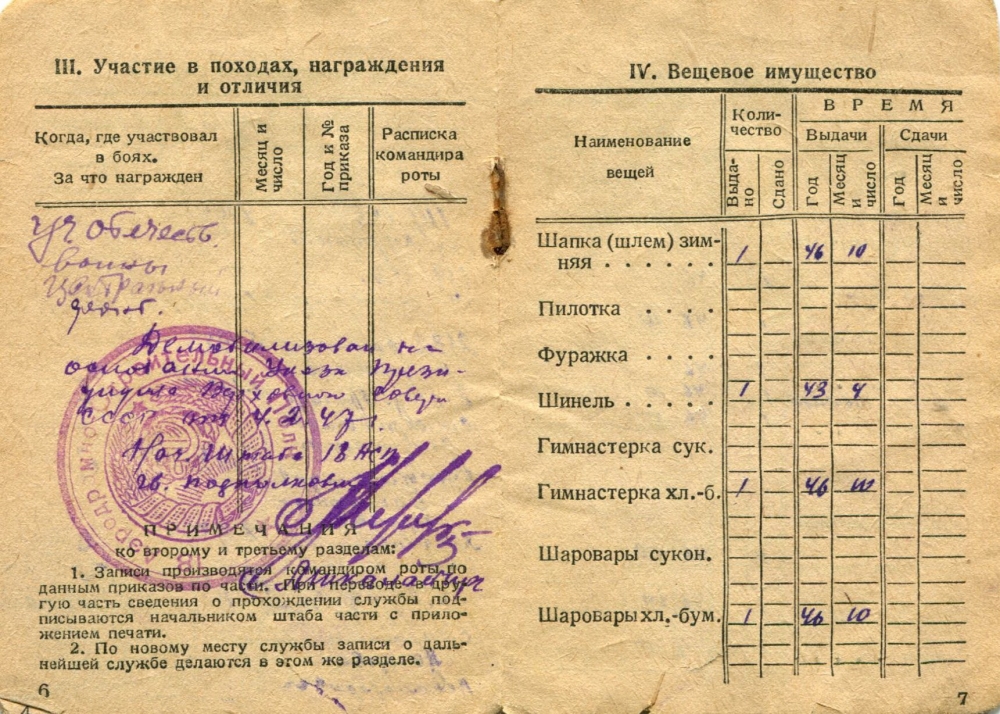 III. Участие в походах, награждения
и отличия
Когда, где участвовал
в боях.
За что награжден
Месяц и
число
Год и №
приказа
Расписка
командира
роты
Уч отечеств.
войны
Демобилизован на
основании Указа Прези-
диума Верховного Совета
СССР от 4.2.47 г.
Нач штаба 18
гв. подполковник
ПРИМЕЧАНИЯ
ко второму и третьему разделам:
1. Записи производятся командиром роты по
данным приказов по части. При переводе в дру-
гую часть сведения о прохождении службы под-
писываются начальником штаба части с прило-
жением печати.
2. По новому месту службы записи о даль-
нейшей службе делаются в этом же разделе.
6
IV. Вещевое имущество
Наименование
вещей
Коли-
чество
ВРЕМЯ
Выдачи
Сдачи
Выда-
но
Сдано
Год
Месяц
и
число
Год
Месяц
и
число
Шапка (шлем) зим-
няя . . . . . . 1 46 10
Пилотка . . . .
Фуражка . . . .
Шинель . . . . . 1 43 4
Гимнастерка сук.
Гимнастерка хл.-б. 1 46 10
Шаровары сукон.
Шаровары хл.-бум. 1 46 10
7